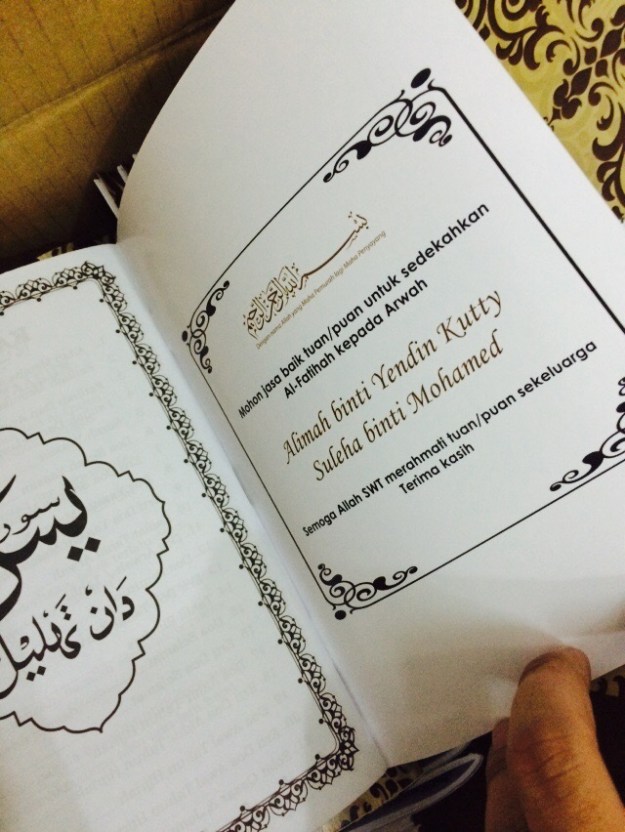 سورة
يس
دان تهليل
بسم الله الرحمن الرحيم
Dengan nama Allah yang Maha Pemurah lagi Maha Penyayang
Mohon jasa baik tuan/puan untuk sedekahkan
Al-Fatihah kepada Arwah
Alimah binti Yendin Kutty
Suleha binti Mohamed
Semoga Allah SWT merahmati tuan/puan sekeluarga
Terima kasih